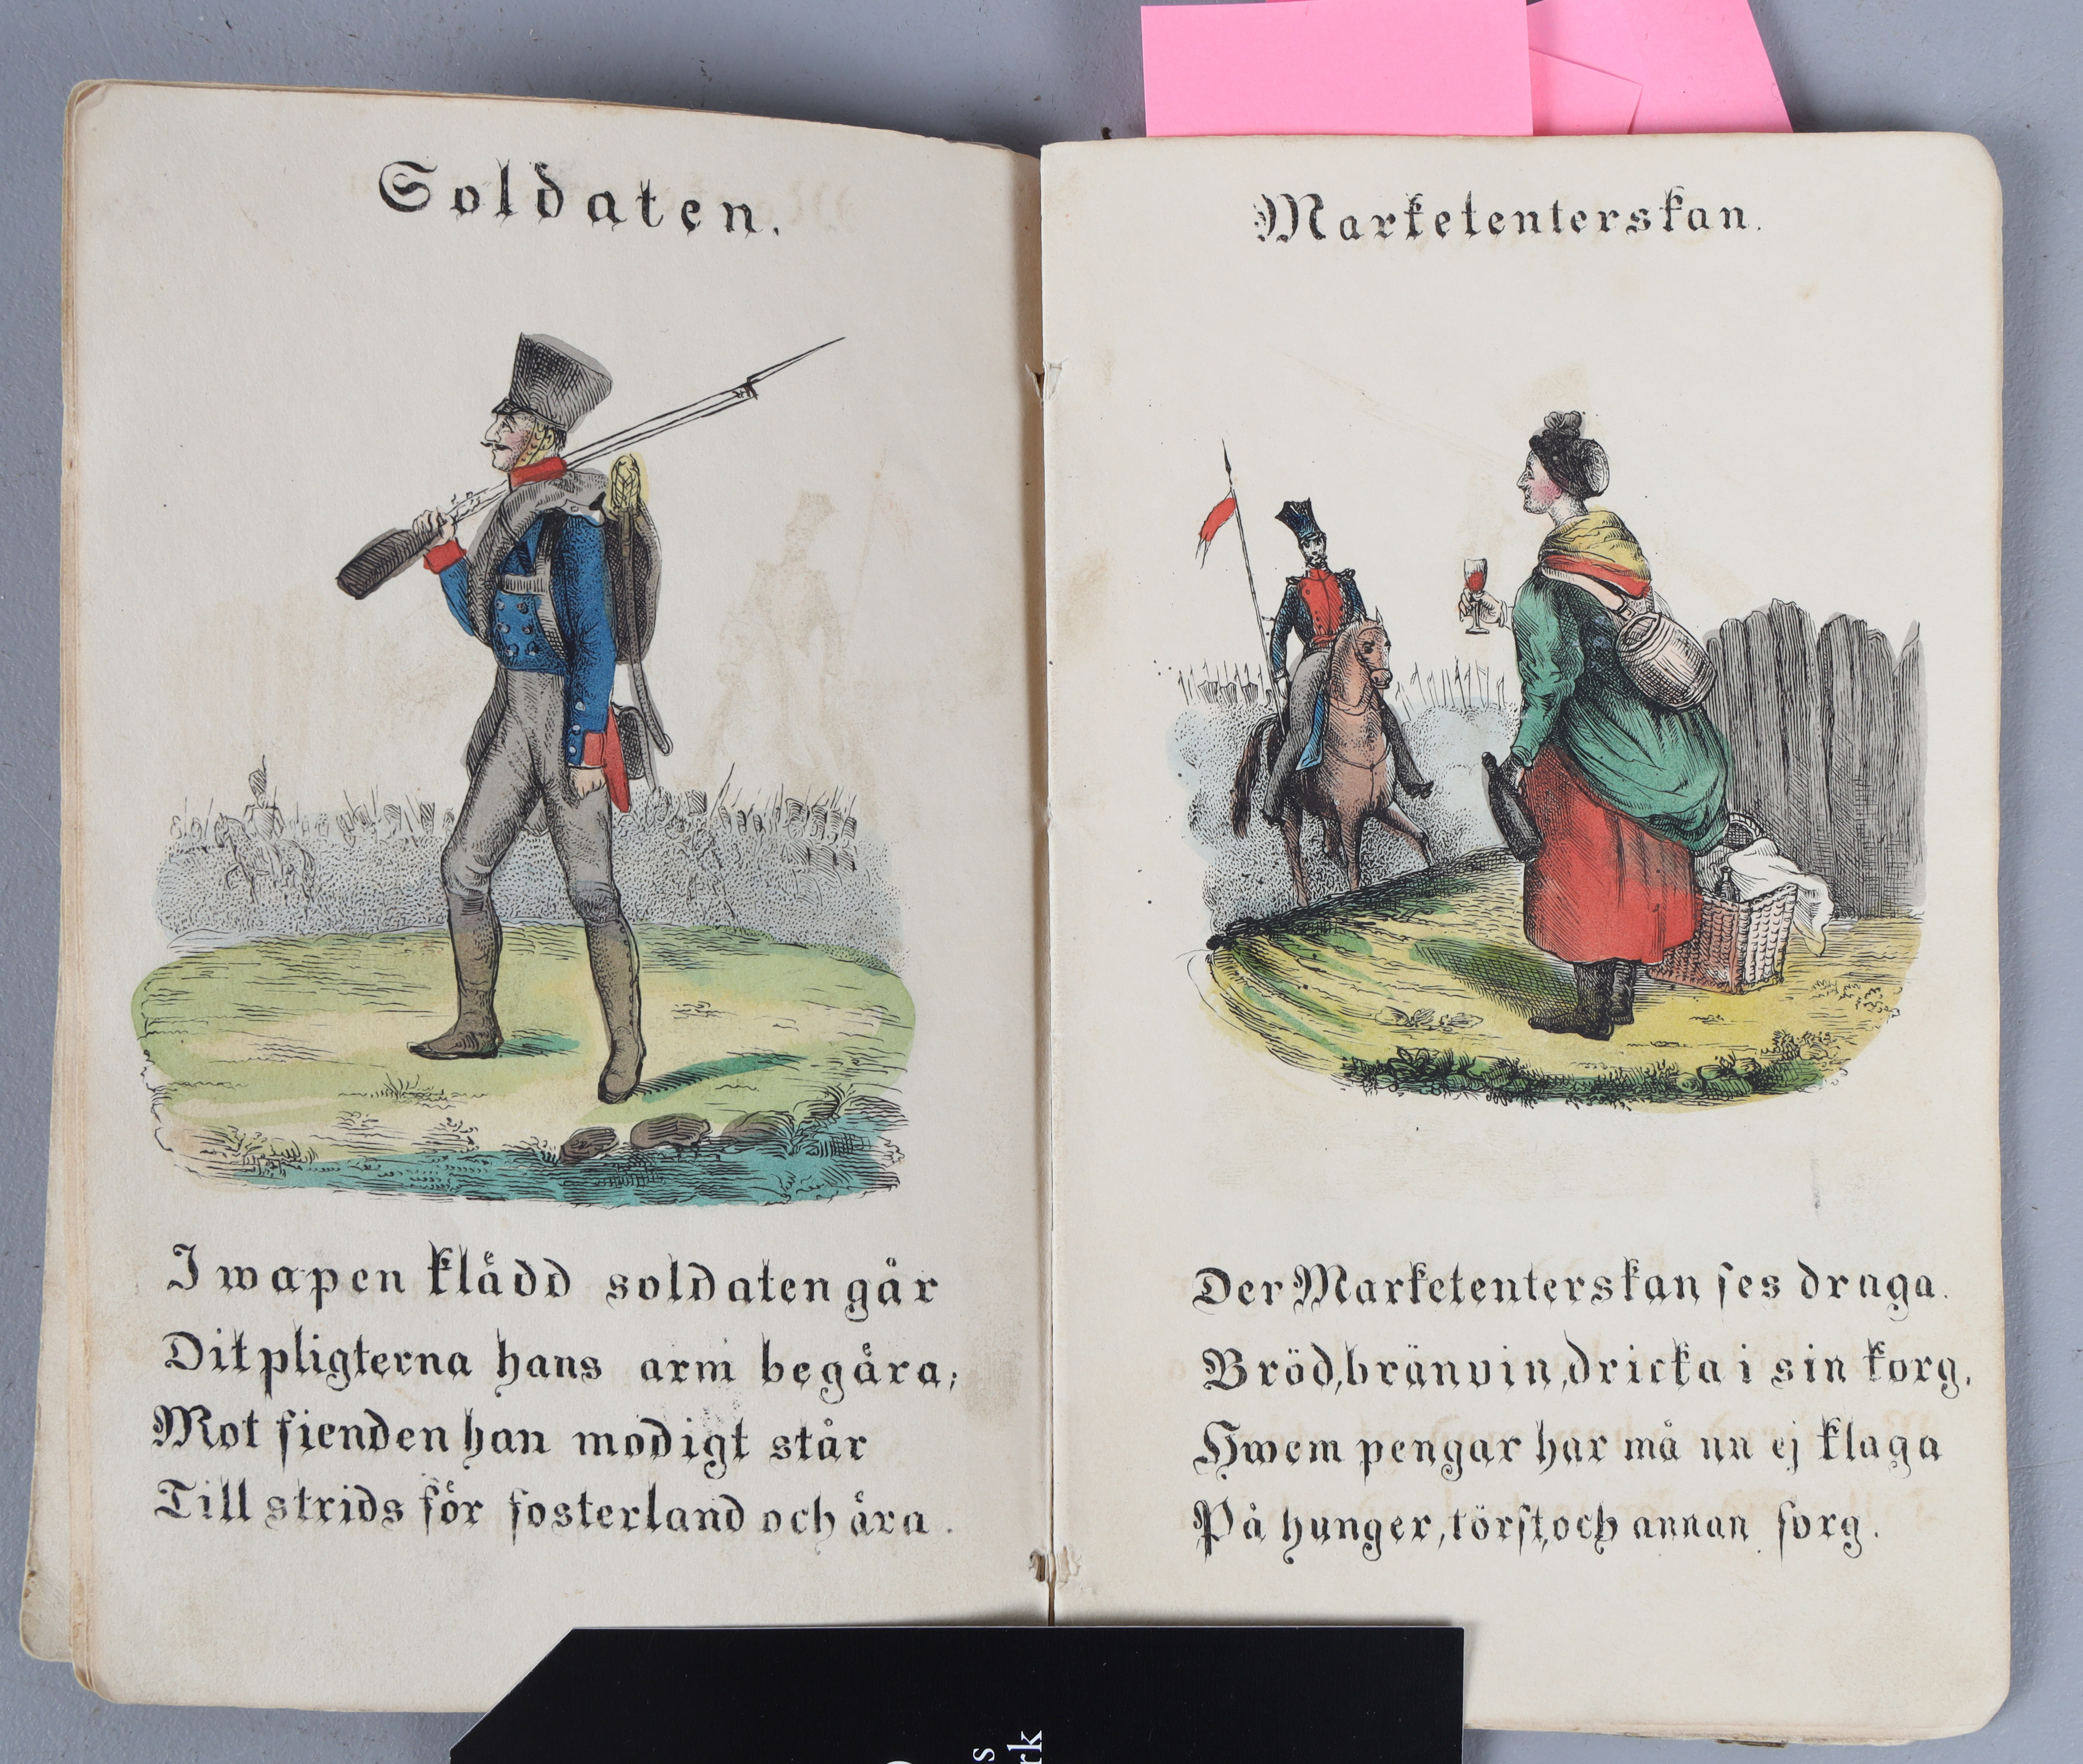 Soldaten.
I wapen klädd soldaten går
Dit pligterna hans arm begära;
Mot fienden han modigt står
Till strids för fosterland och ära.
Marketenterskan.
Der Marketenterskan ses draga.
Bröd, bränvin, dricka i sin korg,
Hwem pengar har må nu ej klaga
På hunger, törst, och annan sorg.